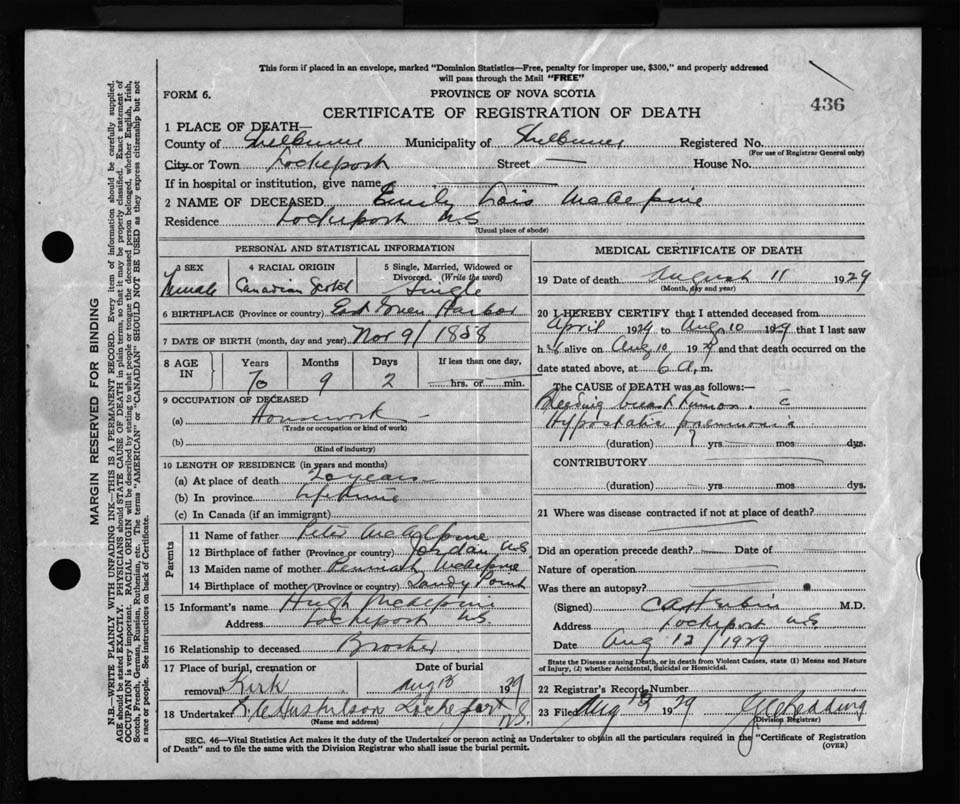 This form if placed in an envelope, marked "Dominion Statistics—Free, penalty for improper use, $300," and properly addressed
will pass through the Mail "FREE"
FORM 6.
PROVINCE OF NOVA SCOTIA
436
CERTIFICATE OF REGISTRATION OF DEATH
1 PLACE OF DEATH—
County of Shelburne Municipality of Shelburne Registered No.
(For use of Registrar General only)
City or Town Lockeport Street — House No.
If in hospital or institution, give name
2 NAME OF DECEASED Emily Lois McAlpine
Residence Lockeport N.S
(Usual place of abode)
PERSONAL AND STATISTICAL INFORMATION
3 SEX 4 RACIAL ORIGIN 5 Single, Married, Widowed or
Divorced. (Write the word)
Female Canadian Scotch Single
6 BIRTHPLACE (Province or country) East Green Harbor
7 DATE OF BIRTH (month, day and year) Nov 9/1858
8 AGE IN Years Months Days If less than one day,
70 9 2 hrs. or min.
9 OCCUPATION OF DECEASED
(a) Housework —
(Trade or occupation or kind of work)
(b)
(Kind of industry)
10 LENGTH OF RESIDENCE (in years and months)
(a) At place of death 20 years
(b) In province Lifetime
(c) In Canada (if an immigrant)
Parents
11 Name of father Peter McAlpine
12 Birthplace of father (Province or country) Jordan N.S
13 Maiden name of mother McAlpine
14 Birthplace of mother (Province or country) Sandy Point
15 Informant's name Hugh McAlpine
Address Lockeport N.S.
16 Relationship to deceased Brother
17 Place of burial, cremation or Date of burial
removal Kirk Aug 13 1929
18 Undertaker Lockeport N.S.
(Name and address)
MEDICAL CERTIFICATE OF DEATH
19 Date of death August 11 1929
(Month, day and year)
20 I HEREBY CERTIFY that I attended deceased from
April 1929 to Aug 10 1929 that I last saw
h alive on Aug 10 1929 and that death occurred on the
date stated above, at 6 a.m.
The CAUSE of DEATH was as follows:—
Bleeding breast tumor. c
Hypostatic pneumonia
(duration) ? yrs mos dys.
CONTRIBUTORY
(duration) yrs mos dys.
21 Where was disease contracted if not at place of death?
Did an operation precede death? Date of
Nature of operation
Was there an autopsy?
(Signed) M.D.
Address Lockeport N.S
Date Aug 12/1929
State the Disease causing Death, or in death from Violent Causes, state (1) Means and Nature
of Injury, (2) whether Accidental, Suicidal or Homicidal.
22 Registrar's Record Number
23 Filed Aug 13 1929 Redding
(Division Registrar)
SEC. 46—Vital Statistics Act makes it the duty of the Undertaker or person acting as Undertaker to obtain all the particulars required in the "Certificate of Registration
of Death" and to file the same with the Division Registrar who shall issue the burial permit.
(OVER)
MARGIN RESERVED FOR BINDING
N.B.—WRITE PLAINLY WITH UNFADING INK—THIS IS A PERMANENT RECORD. Every item of information should be carefully supplied.
AGE should be stated EXACTLY. PHYSICIANS should STATE CAUSE OF DEATH in plain terms, so that it may be properly classified. Exact statement of
OCCUPATION is very important. RACIAL ORIGIN will be described by stating to what people or tongue the deceased person belonged, whether English, Irish,
Scotch, French, German, Russian, Ruthenian, etc. The terms "AMERICAN" or "CANADIAN" SHOULD NOT BE USED as they express citizenship but not
a race or people. See instructions on back of Certificate.